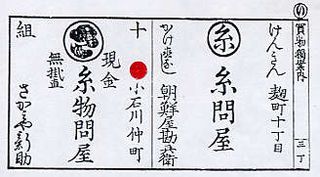 買物獨案内
三丁
糸
けんくわん 麹町十丁目
糸問屋
かけねなし 朝鮮屋勘兵衛
十 小石川仲町
現金
糸物問屋
無掛直
組